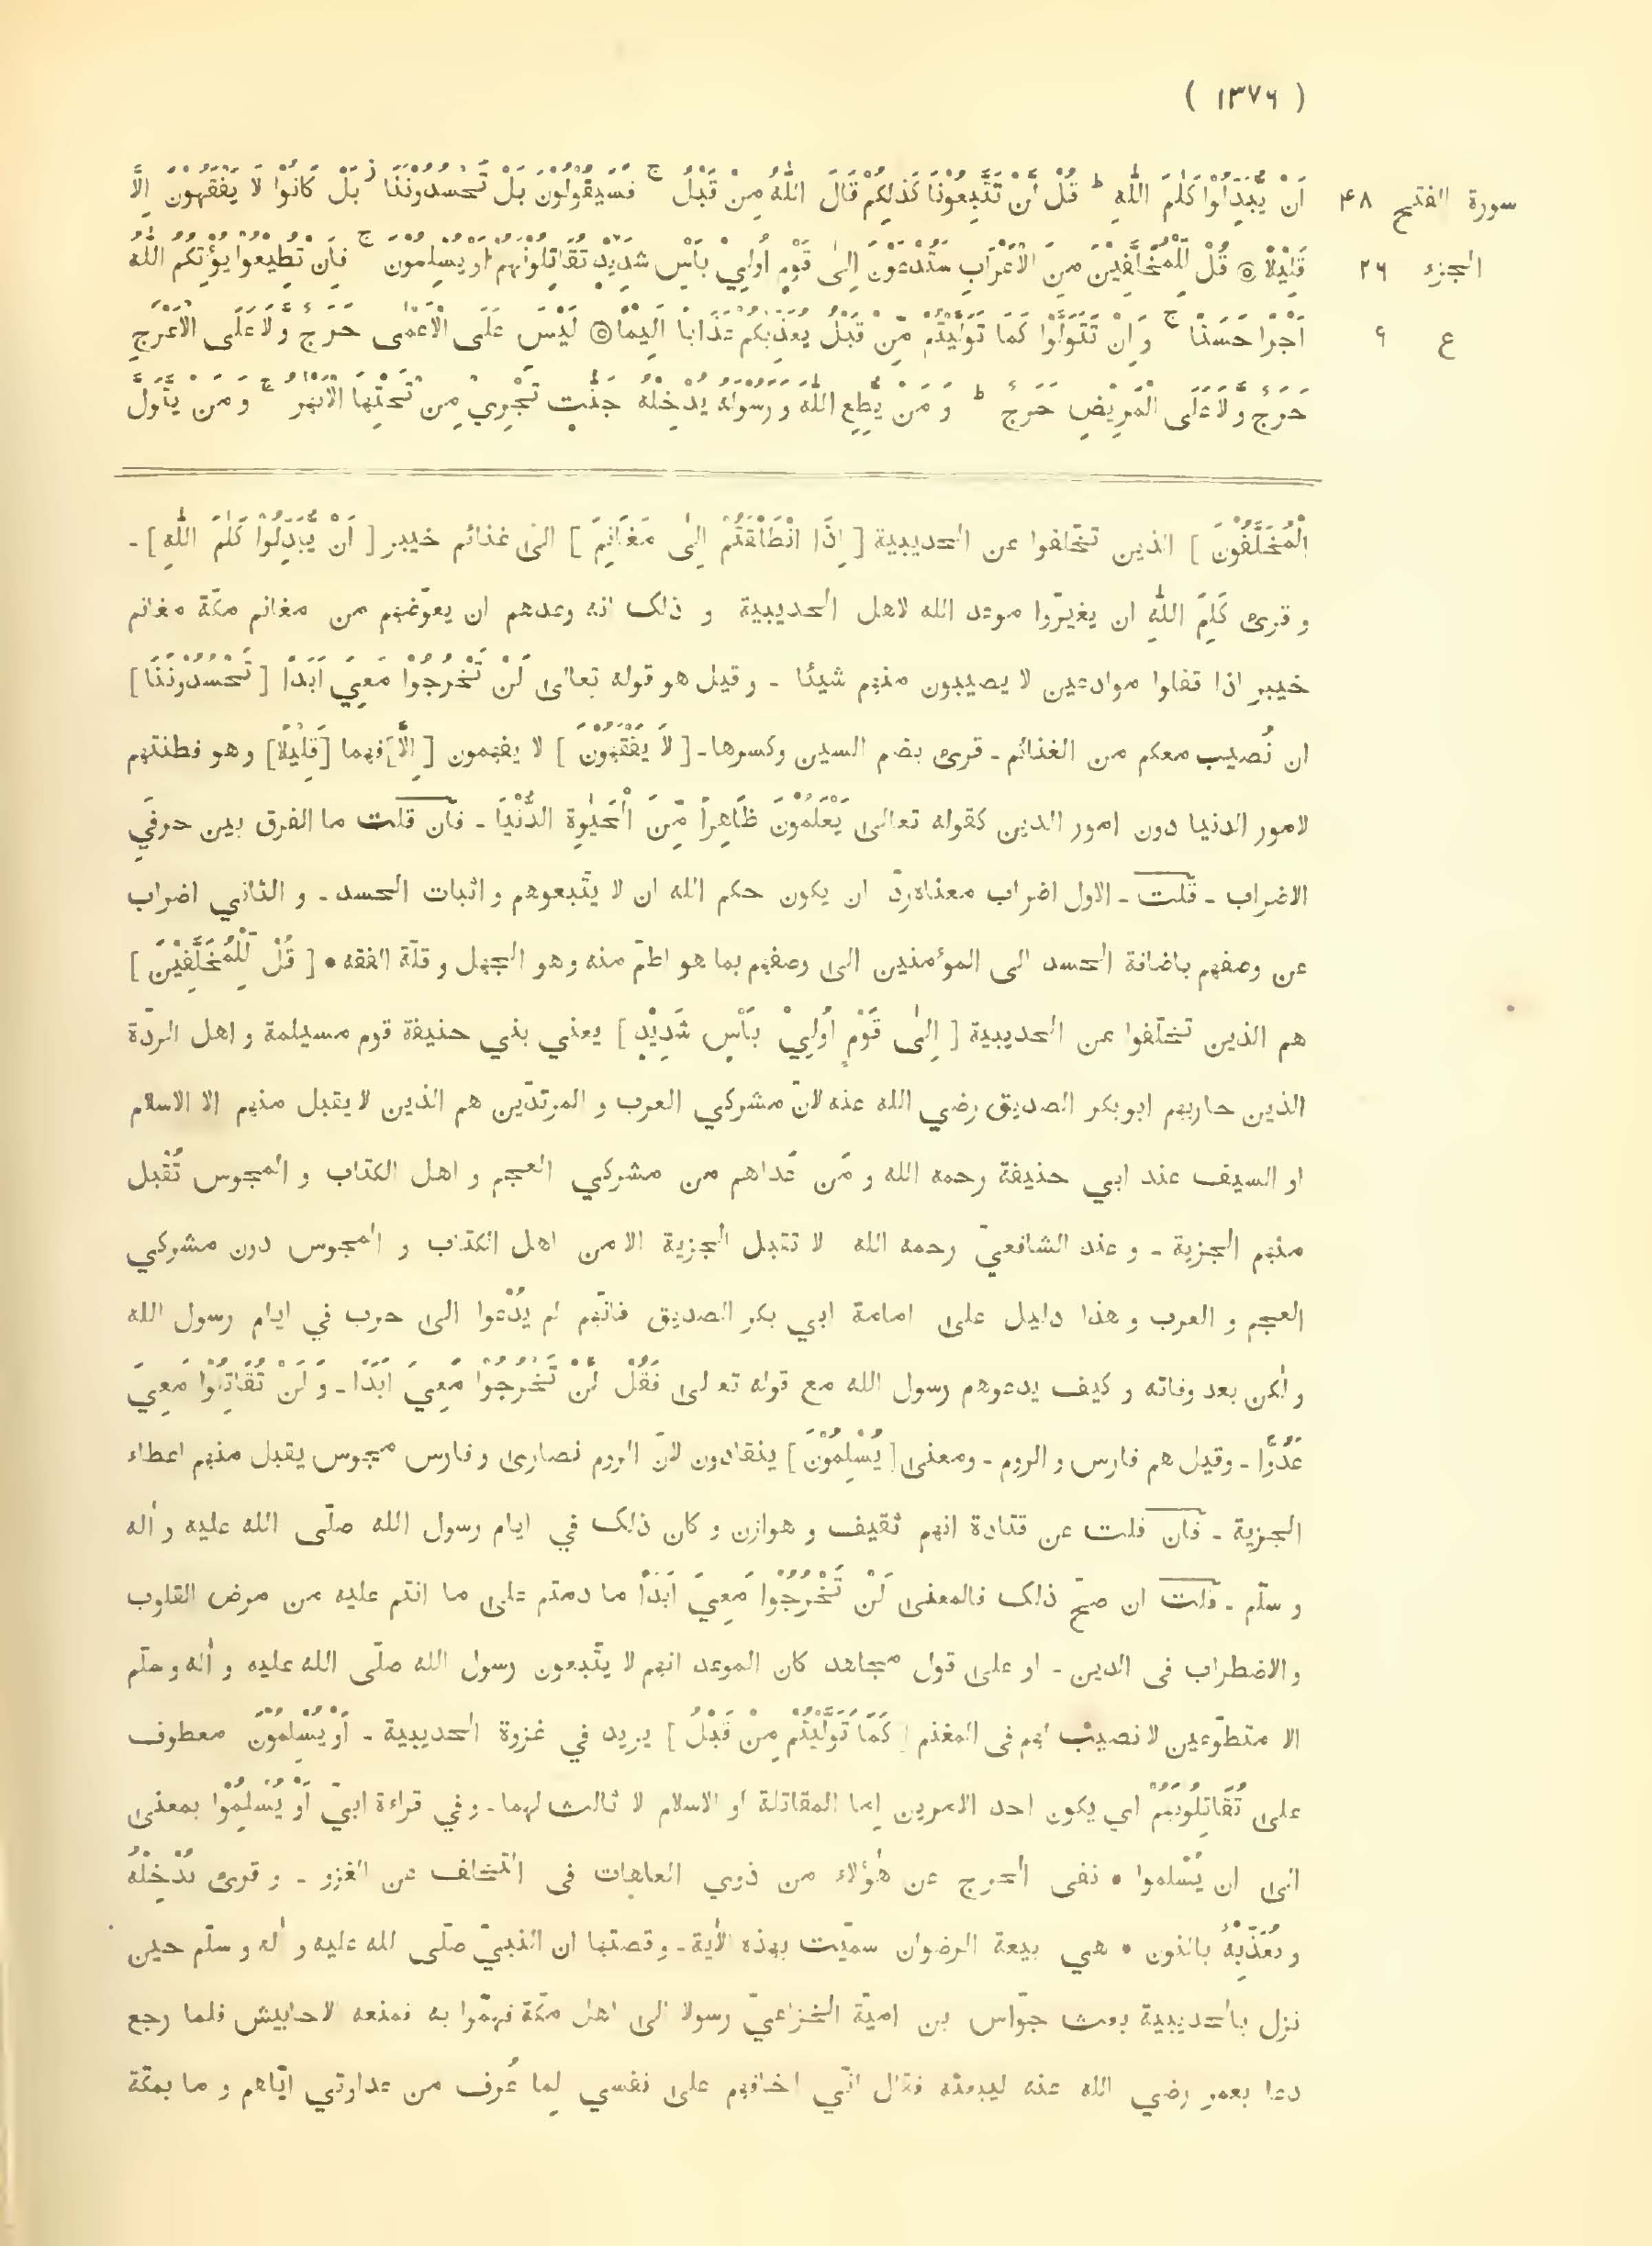 ( ١٣٧٦ )
سورة الفتح ٤٨
الجزء ٢٦
ع ٩
اَنْ يُّبَدِّلُوْا كَلٰمَ اللّٰهِ ط قُلْ لَّنْ تَتَّبِعُوْنَا كَذٰلِكُمْ قَالَ اللّٰهُ مِنْ قَبْلُ ج فَسَيَقُوْلُوْنَ بَلْ تَحْسُدُوْنَنَا ز بَلْ كَانُوْا لَا يَفْقَهُوْنَ اِلَّا
قَلِيْلًا ۞ قُلْ لِّلْمُخَلَّفِيْنَ مِنَ الْاَعْرَابِ سَتُدْعَوْنَ اِلٰى قَوْمٍ اُولِيْ بَاْسٍ شَدِيْدٍ تُقَاتِلُوْنَهُمْ اَوْ يُسْلِمُوْنَ ج فَاِنْ تُطِيْعُوْا يُؤْتِكُمُ اللّٰهُ
اَجْرًا حَسَنًا ج وَ اِنْ تَتَوَلَّوْا كَمَا تَوَلَّيْتُمْ مِّنْ قَبْلُ يُعَذِّبْكُمْ عَذَابًا اَلِيْمًا ۞ لَيْسَ عَلَى الْاَعْمٰى حَرَجٌ وَّلَا عَلَى الْاَعْرَجِ
حَرَجٌ وَّلَا عَلَى الْمَرِيْضِ حَرَجٌ ط وَ مَنْ يُّطِعِ اللّٰهَ وَ رَسُوْلَهُ يُدْخِلْهُ جَنّٰتٍ تَجْرِيْ مِنْ تَحْتِهَا الْاَنْهٰرُ ج وَ مَنْ يَّتَوَلَّ
الْمُخَلَّفُوْنَ ] الذين تخلّفوا عن الحديبية [ اِذَا انْطَلَقْتُمْ اِلٰى مَغَانِمَ ] الى غنائم خيبر [ اَنْ يُّبَدِّلُوْا كَلٰمَ اللّٰهِ ] -
و قرئ كَلِمَ اللّٰهِ ان يغيّروا موعد الله لاهل الحديبية و ذلك انه وعدهم ان يعوّضهم من مغانم مكّة مغانم
خيبر اذا قفلوا موادعين لا يصيبون منهم شيئا - و قيل هو قوله تعالى لَنْ تَخْرُجُوْا مَعِيَ اَبَدًا [ تَحْسُدُوْنَنَا ]
ان نُصيب معكم من الغنائم - قرئ بضم السين وكسرها - [ لَا يَفْقَهُوْنَ ] لا يفهمون [ اِلَّا ] فهما [ قَلِيْلًا ] وهو فطنتهم
لامور الدنيا دون امور الدين كقوله تعالى يَعْلَمُوْنَ ظَاهِرًا مِّنَ الْحَيٰوةِ الدُّنْيَا - فان قلت ما الفرق بين حرفَي
الاضراب - قلت - الاول اضراب معناه ردّ ان يكون حكم الله ان لا يتّبعوهم و اثبات الحسد - و الثاني اضراب
عن وصفهم باضافة الحسد الى المؤمنين الى وصفهم بما هو اطمّ منه وهو الجهل و قلّة الفقه • [ قُلْ لِّلْمُخَلَّفِيْنَ ]
هم الذين تخلّفوا عن الحديبية [ اِلٰى قَوْمٍ اُولِيْ بَاْسٍ شَدِيْدٍ ] يعني بني حنيفة قوم مسيلمة و اهل الردّة
الذين حاربهم ابوبكر الصديق رضي الله عنه لانّ مشركي العرب و المرتدّين هم الذين لا يقبل منهم الا الاسلام
او السيف عند ابي حنيفة رحمه الله و مَن عَداهم من مشركي العجم و اهل الكتاب و المجوس تُقبل
منهم الجزية - و عند الشافعيّ رحمه الله لا تقبل الجزية الا من اهل الكتاب و المجوس دون مشركي
العجم و العرب و هذا دليل على امامة ابي بكر الصديق فانّهم لم يُدْعوا الى حرب في ايام رسول الله
و لكن بعد وفاته و كيف يدعوهم رسول الله مع قوله تعالى فَقُلْ لَّنْ تَخْرُجُوْا مَعِيَ اَبَدًا - وَ لَنْ تُقَاتِلُوْا مَعِيَ
عَدُوًّا - وقيل هم فارس و الروم - ومعنى [ يُسْلِمُوْنَ ] ينقادون لانّ الروم نصارى و فارس مجوس يقبل منهم اعطاء
الجزية - فان قلت عن قتادة انهم ثقيف و هوازن و كان ذلك في ايام رسول الله صلّى الله عليه و اٰله
و سلّم - قلت ان صحّ ذلك فالمعنى لَنْ تَخْرُجُوْا مَعِيَ اَبَدًا ما دمتم على ما انتم عليه من مرض القلوب
والاضطراب فى الدين - او على قول مجاهد كان الموعد انهم لا يتّبعون رسول الله صلّى الله عليه و اٰله و سلّم
الا متطوّعين لا نصيب لهم فى المغنم [ كَمَا تَوَلَّيْتُمْ مِنْ قَبْلُ ] يريد في غزوة الحديبية - اَوْ يُسْلِمُوْنَ معطوف
على تُقَاتِلُوْنَهُمْ اي يكون احد الامرين اِما المقاتلة او الاسلام لا ثالث لهما - وفي قراءة ابيّ اَوْ يُسْلِمُوْا بمعنى
الى ان يُسْلموا • نفى الحرج عن هٰؤلاء من ذوي العاهات فى التخلف عن الغزو - و قرئ نُدْخِلْهُ
و نُعَذِّبْهُ بالنون • هي بيعة الرضوان سميّت بهذه الاٰية - وقصتها ان النبيّ صلّى الله عليه و اٰله و سلّم حين
نزل بالحديبية بعث جوّاس بن اميّة الخزاعيّ رسولا الى اهل مكّة فهمّوا به فمنعه الاحابيش فلما رجع
دعا بعمر رضي الله عنه ليبعثه فقال انّي اخافهم على نفسي لِما عُرف من عداوتي ايّاهم و ما بمكّة